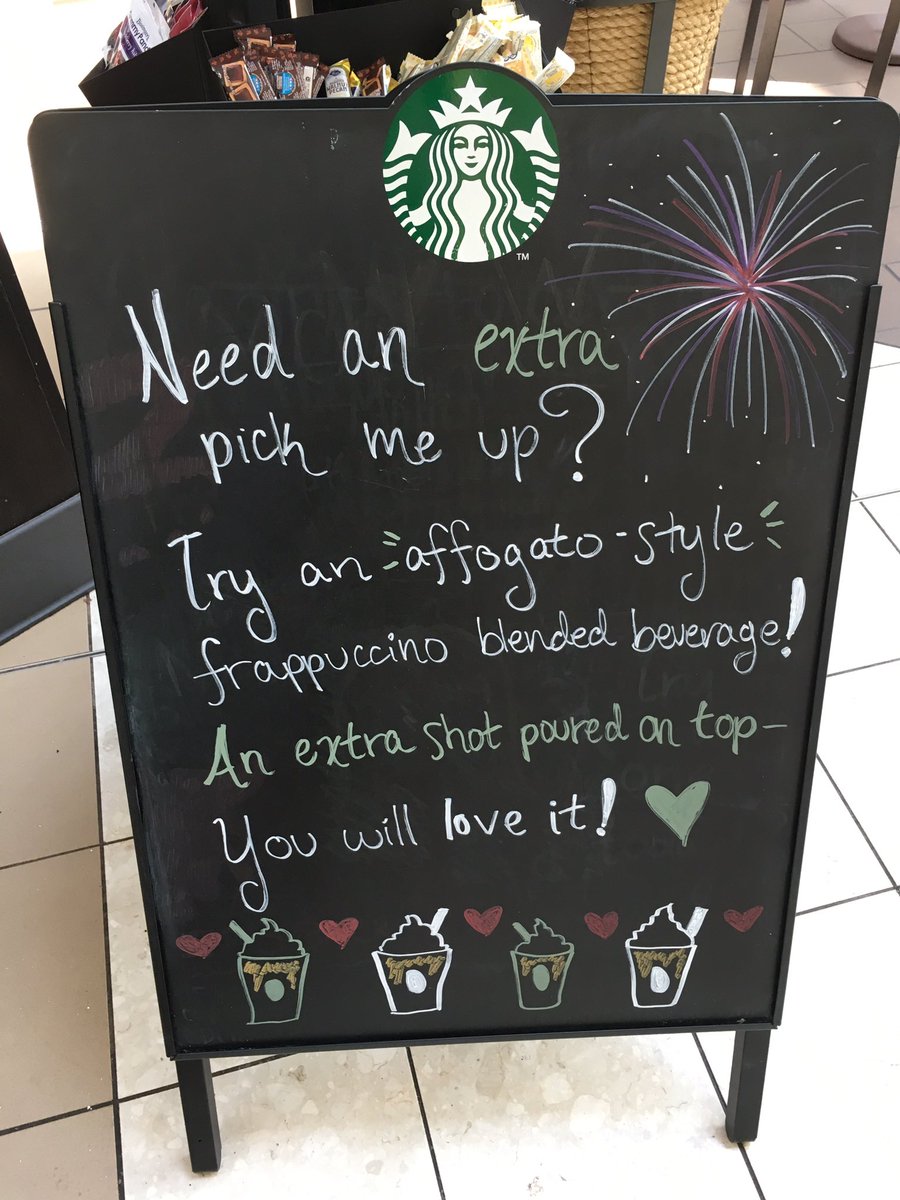 TM
Need an extra
pick me up?
Try an affogato-style
frappuccino blended beverage!
An extra shot poured on top-
You will love it!